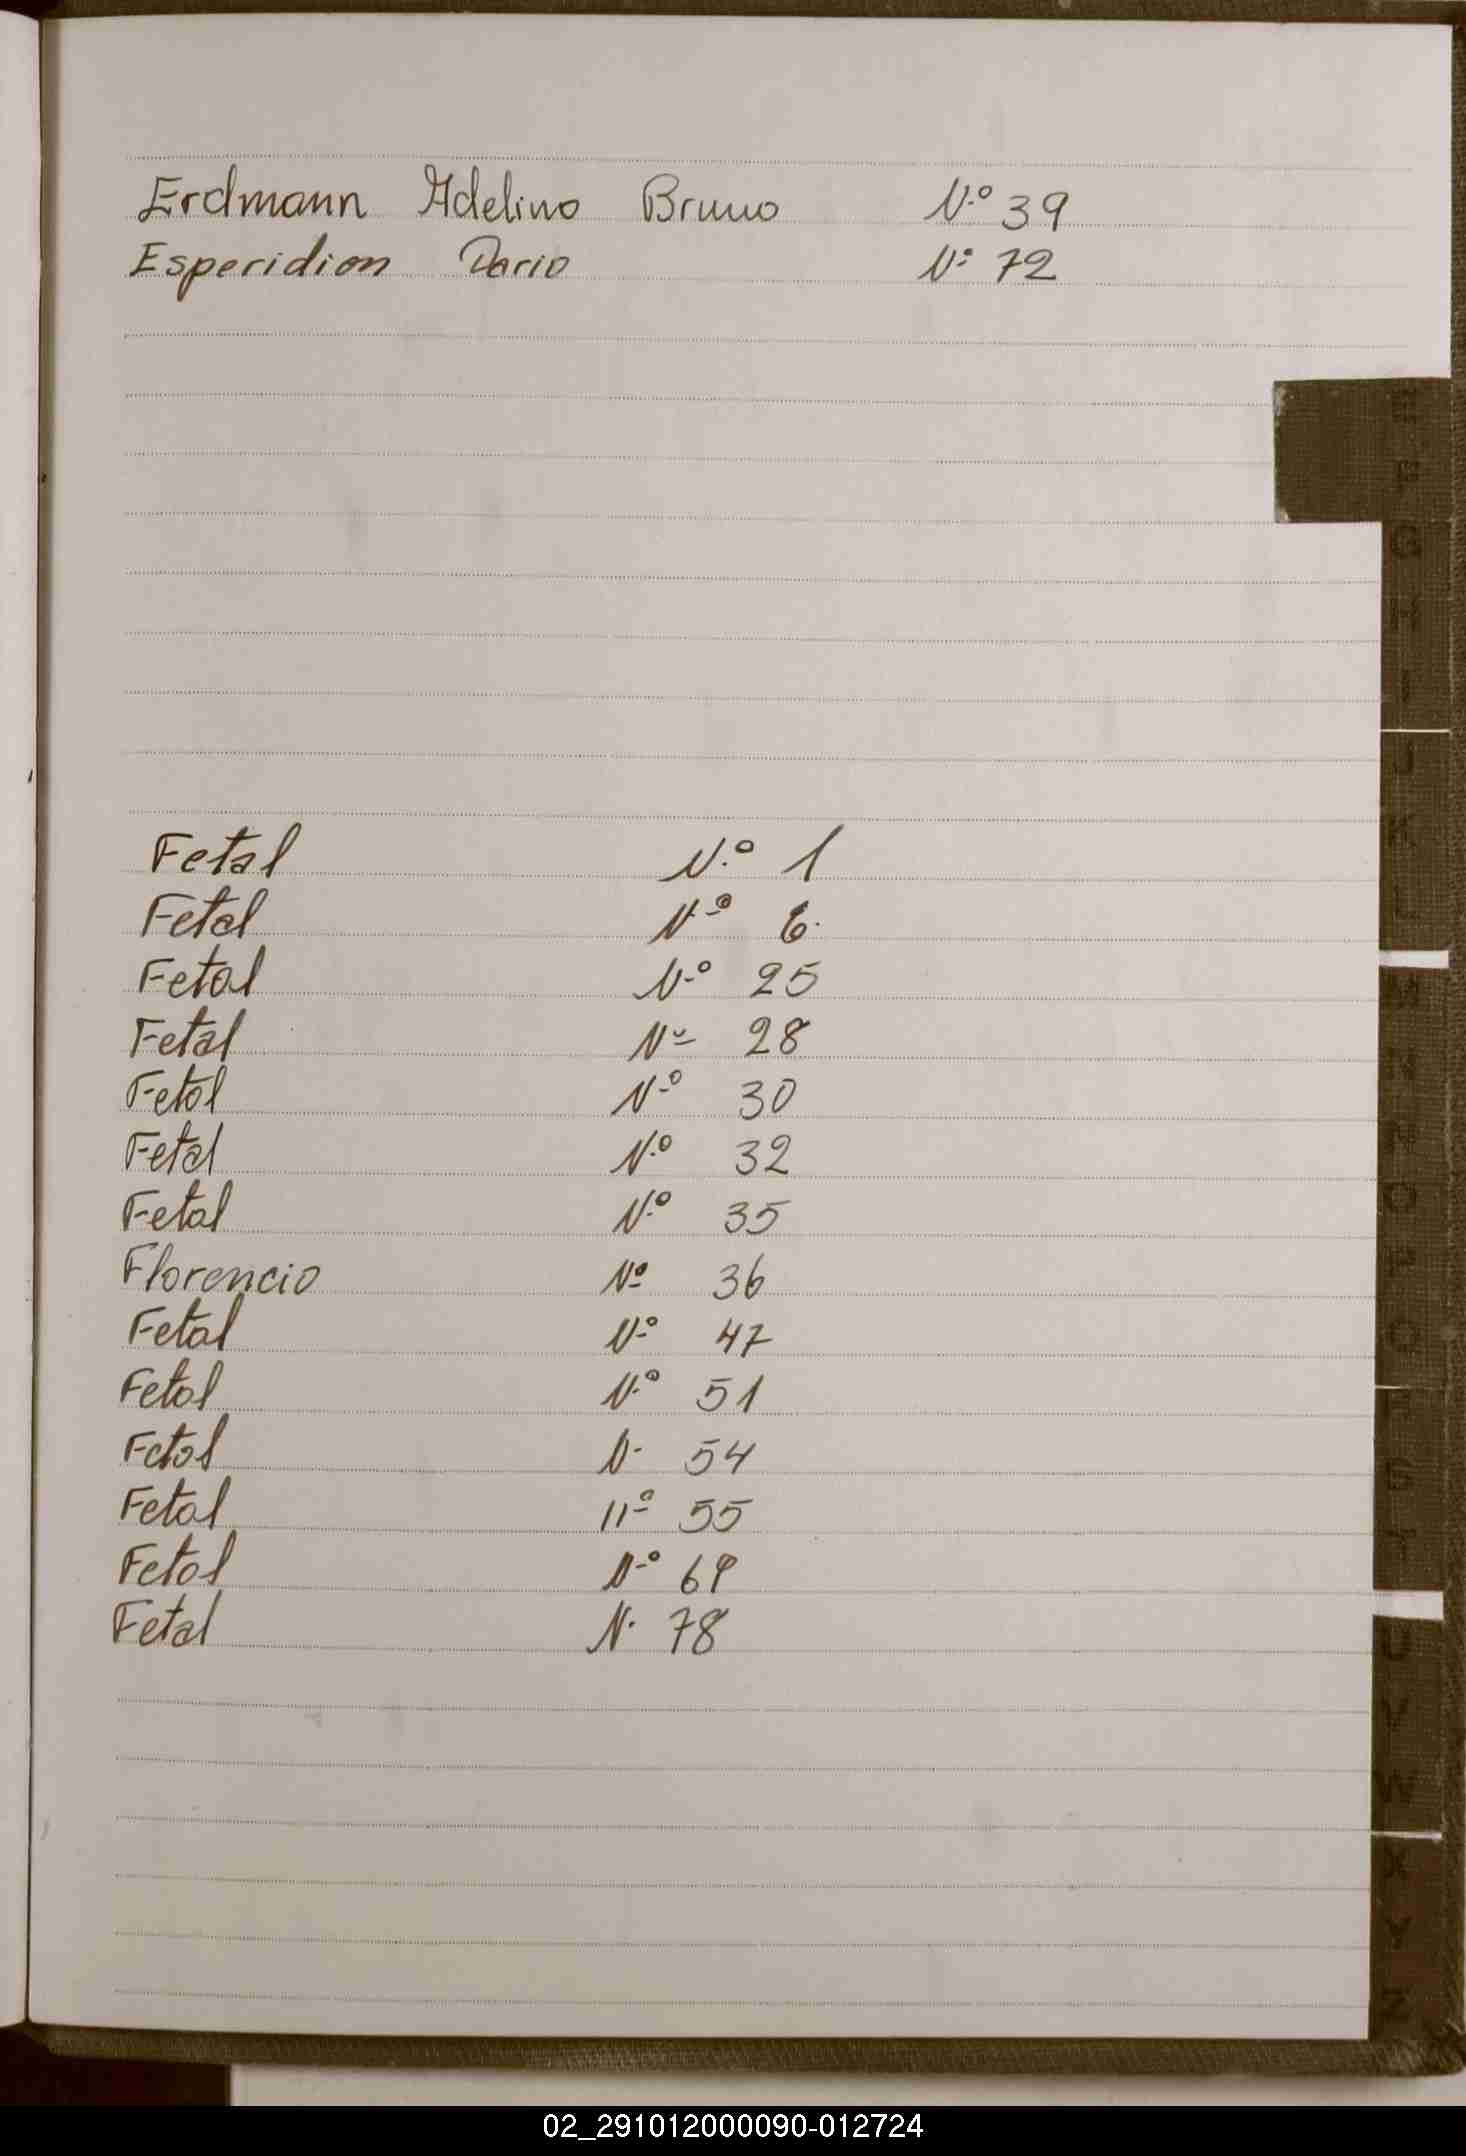 Erdmann Adelino Bruno N.º 39
Esperidion Dario Nº 72
Fetal N.º 1
Fetal N.º 6.
Fetal Nº 25
Fetal Nº 28
Fetal Nº 30
Fetal N.º 32
Fetal N.º 35
Florencio Nº 36
Fetal Nº 47
Fetal N.º 51
Fetal N. 54
Fetal Nº 55
Fetal Nº 69
Fetal N. 78
E
F
G
H
I
J
K
L
M
N
O
P
Q
R
S
T
U
V
W
X
Y
Z
02_291012000090-012724